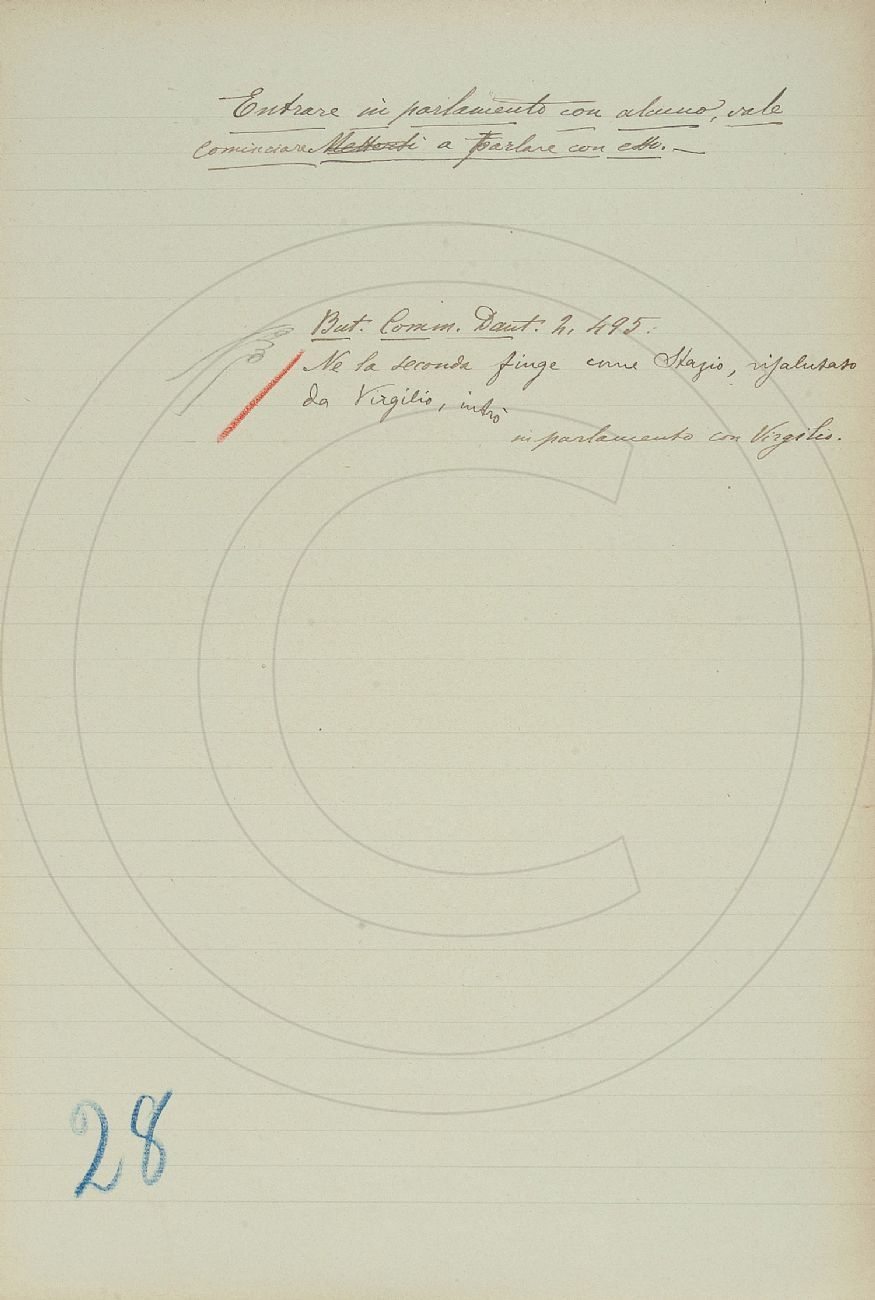 Entrare in parlamento con alcuno, vale
Cominciare Mettersi a parlare con esso. —
But. Comm. Dant. 2, 495:
Ne la seconda finge come Stazio, risalutato
da Virgilio, intrò
in parlamento con Virgilio.
28